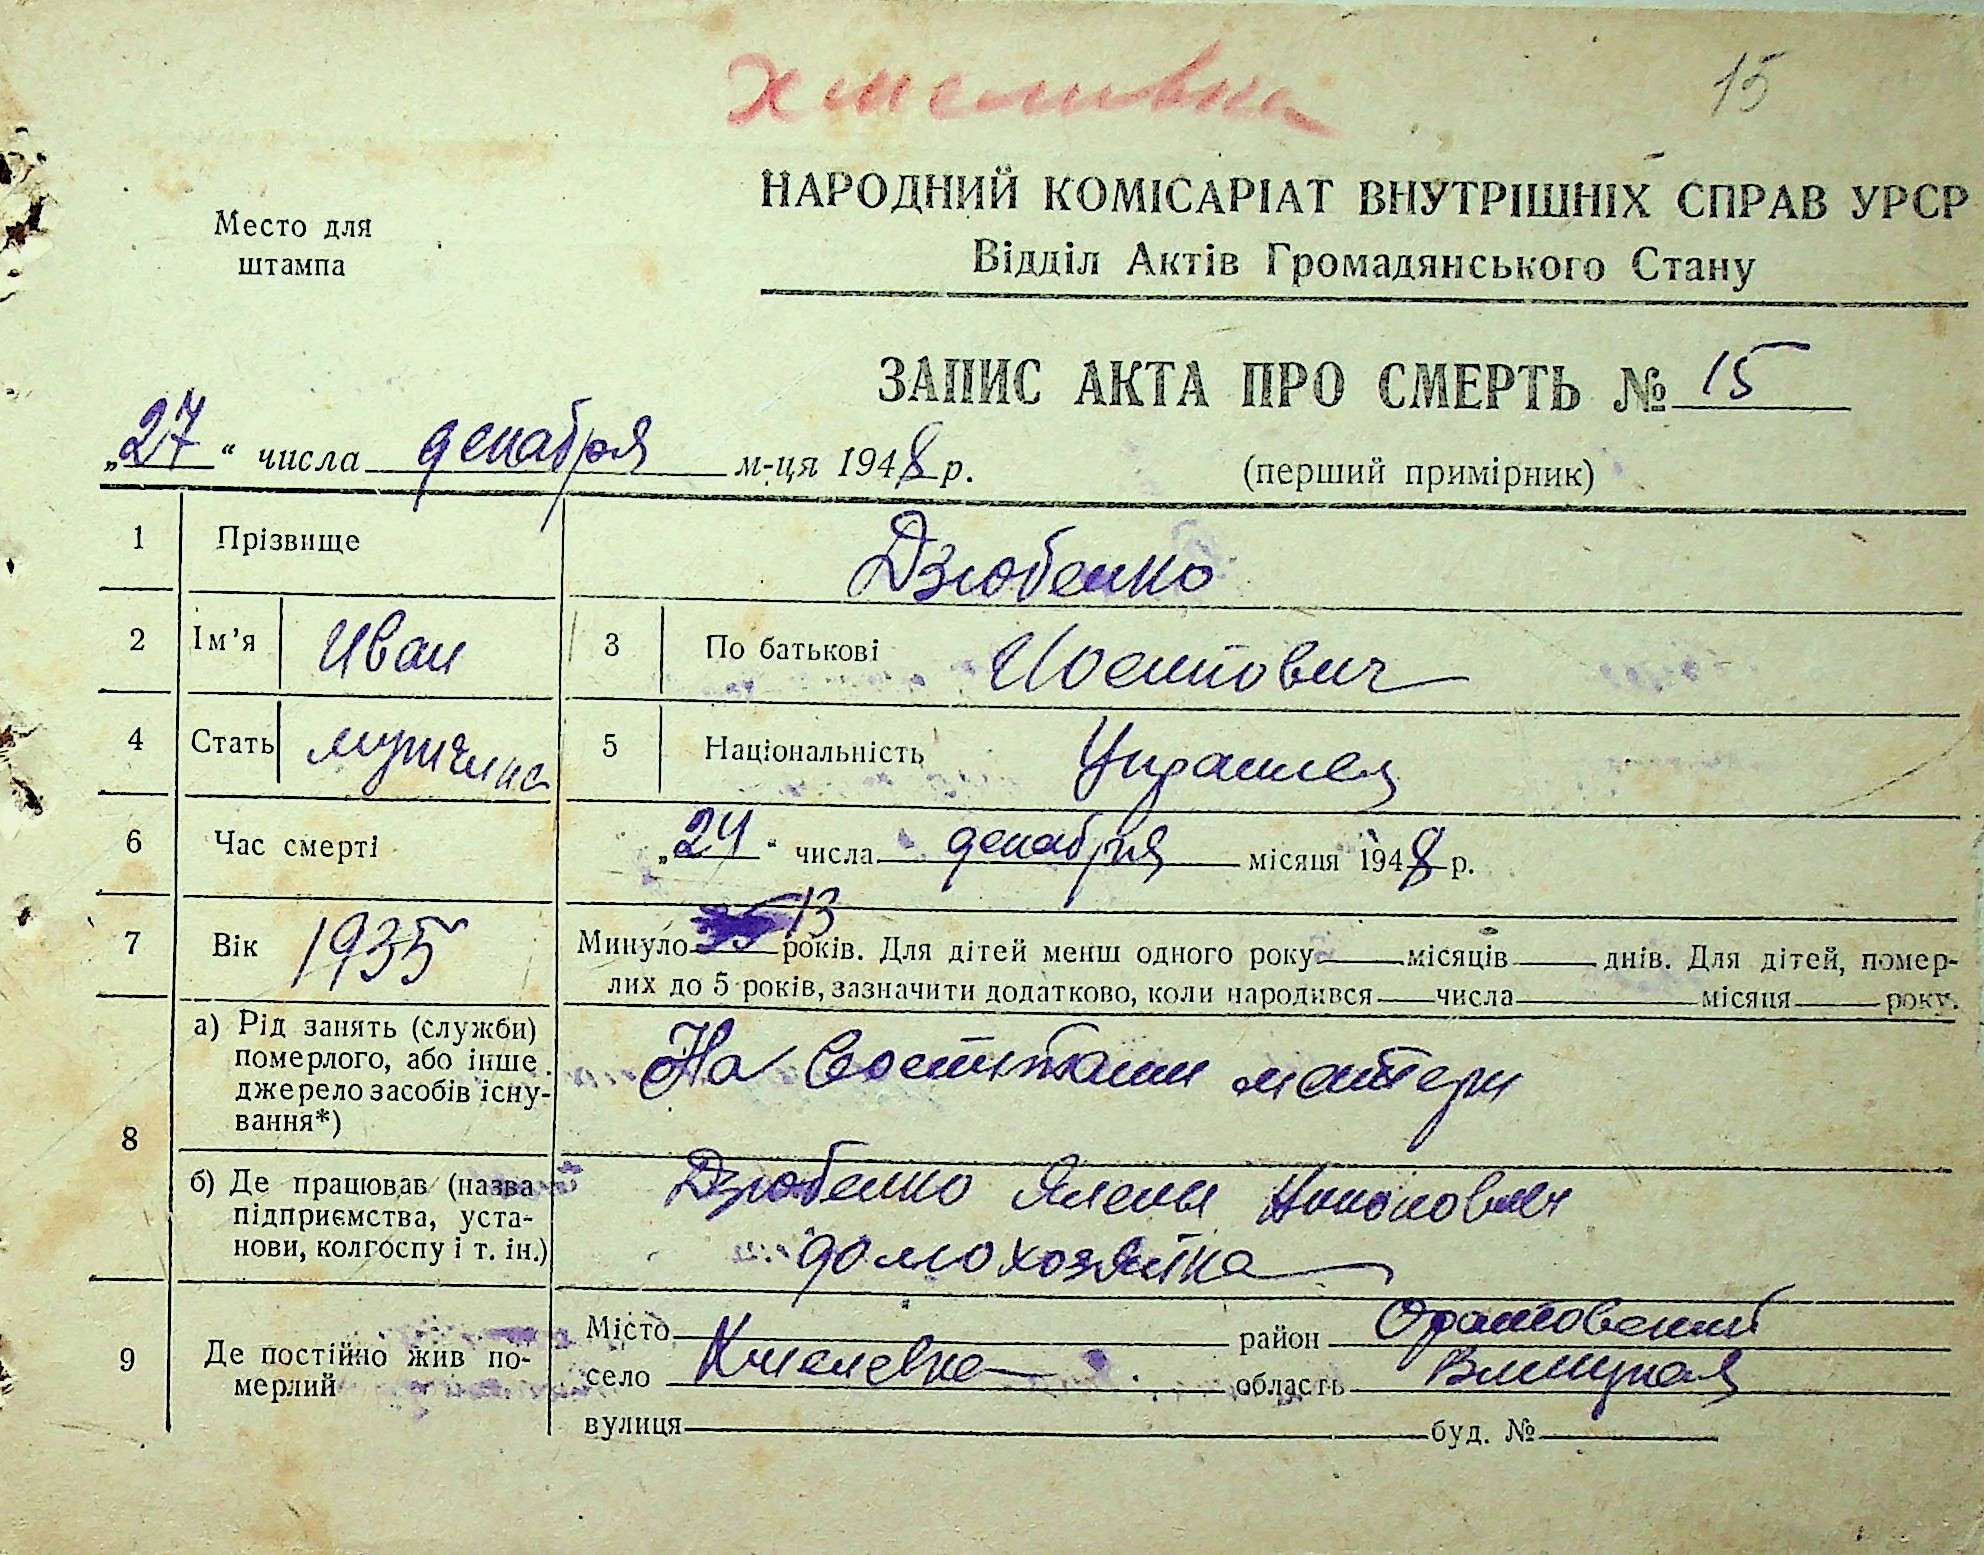 Хмеливка
15
Место для
штампа
НАРОДНИЙ КОМІСАРІАТ ВНУТРІШНІХ СПРАВ УРСР
Відділ Актів Громадянського Стану
ЗАПИС АКТА ПРО СМЕРТЬ № 15
„27“ числа декабря м-ця 1948 р.
(перший примірник)
1 Прізвище Дзюбенко
2 Ім’я Иван 3 По батькові Иосипович
4 Стать мужчина 5 Національність Украинец
6 Час смерті „24“ числа декабря місяця 1948 р.
7 Вік 1935 Минуло 13 років. Для дітей менш одного року місяців днів. Для дітей, помер-
лих до 5 років, зазначити додатково, коли народився числа місяця року.
8 а) Рід занять (служби)
померлого, або інше
джерело засобів існу-
вання*)
На воспитании матери
б) Де працював (назва
підприємства, уста-
нови, колгоспу і т. ін.)
Дзюбенко Ялены
домохозяйка
9 Де постійно жив по-
мерлий
Місто район Оратовский
село Хмелевка область Виницкая
вулиця буд. №